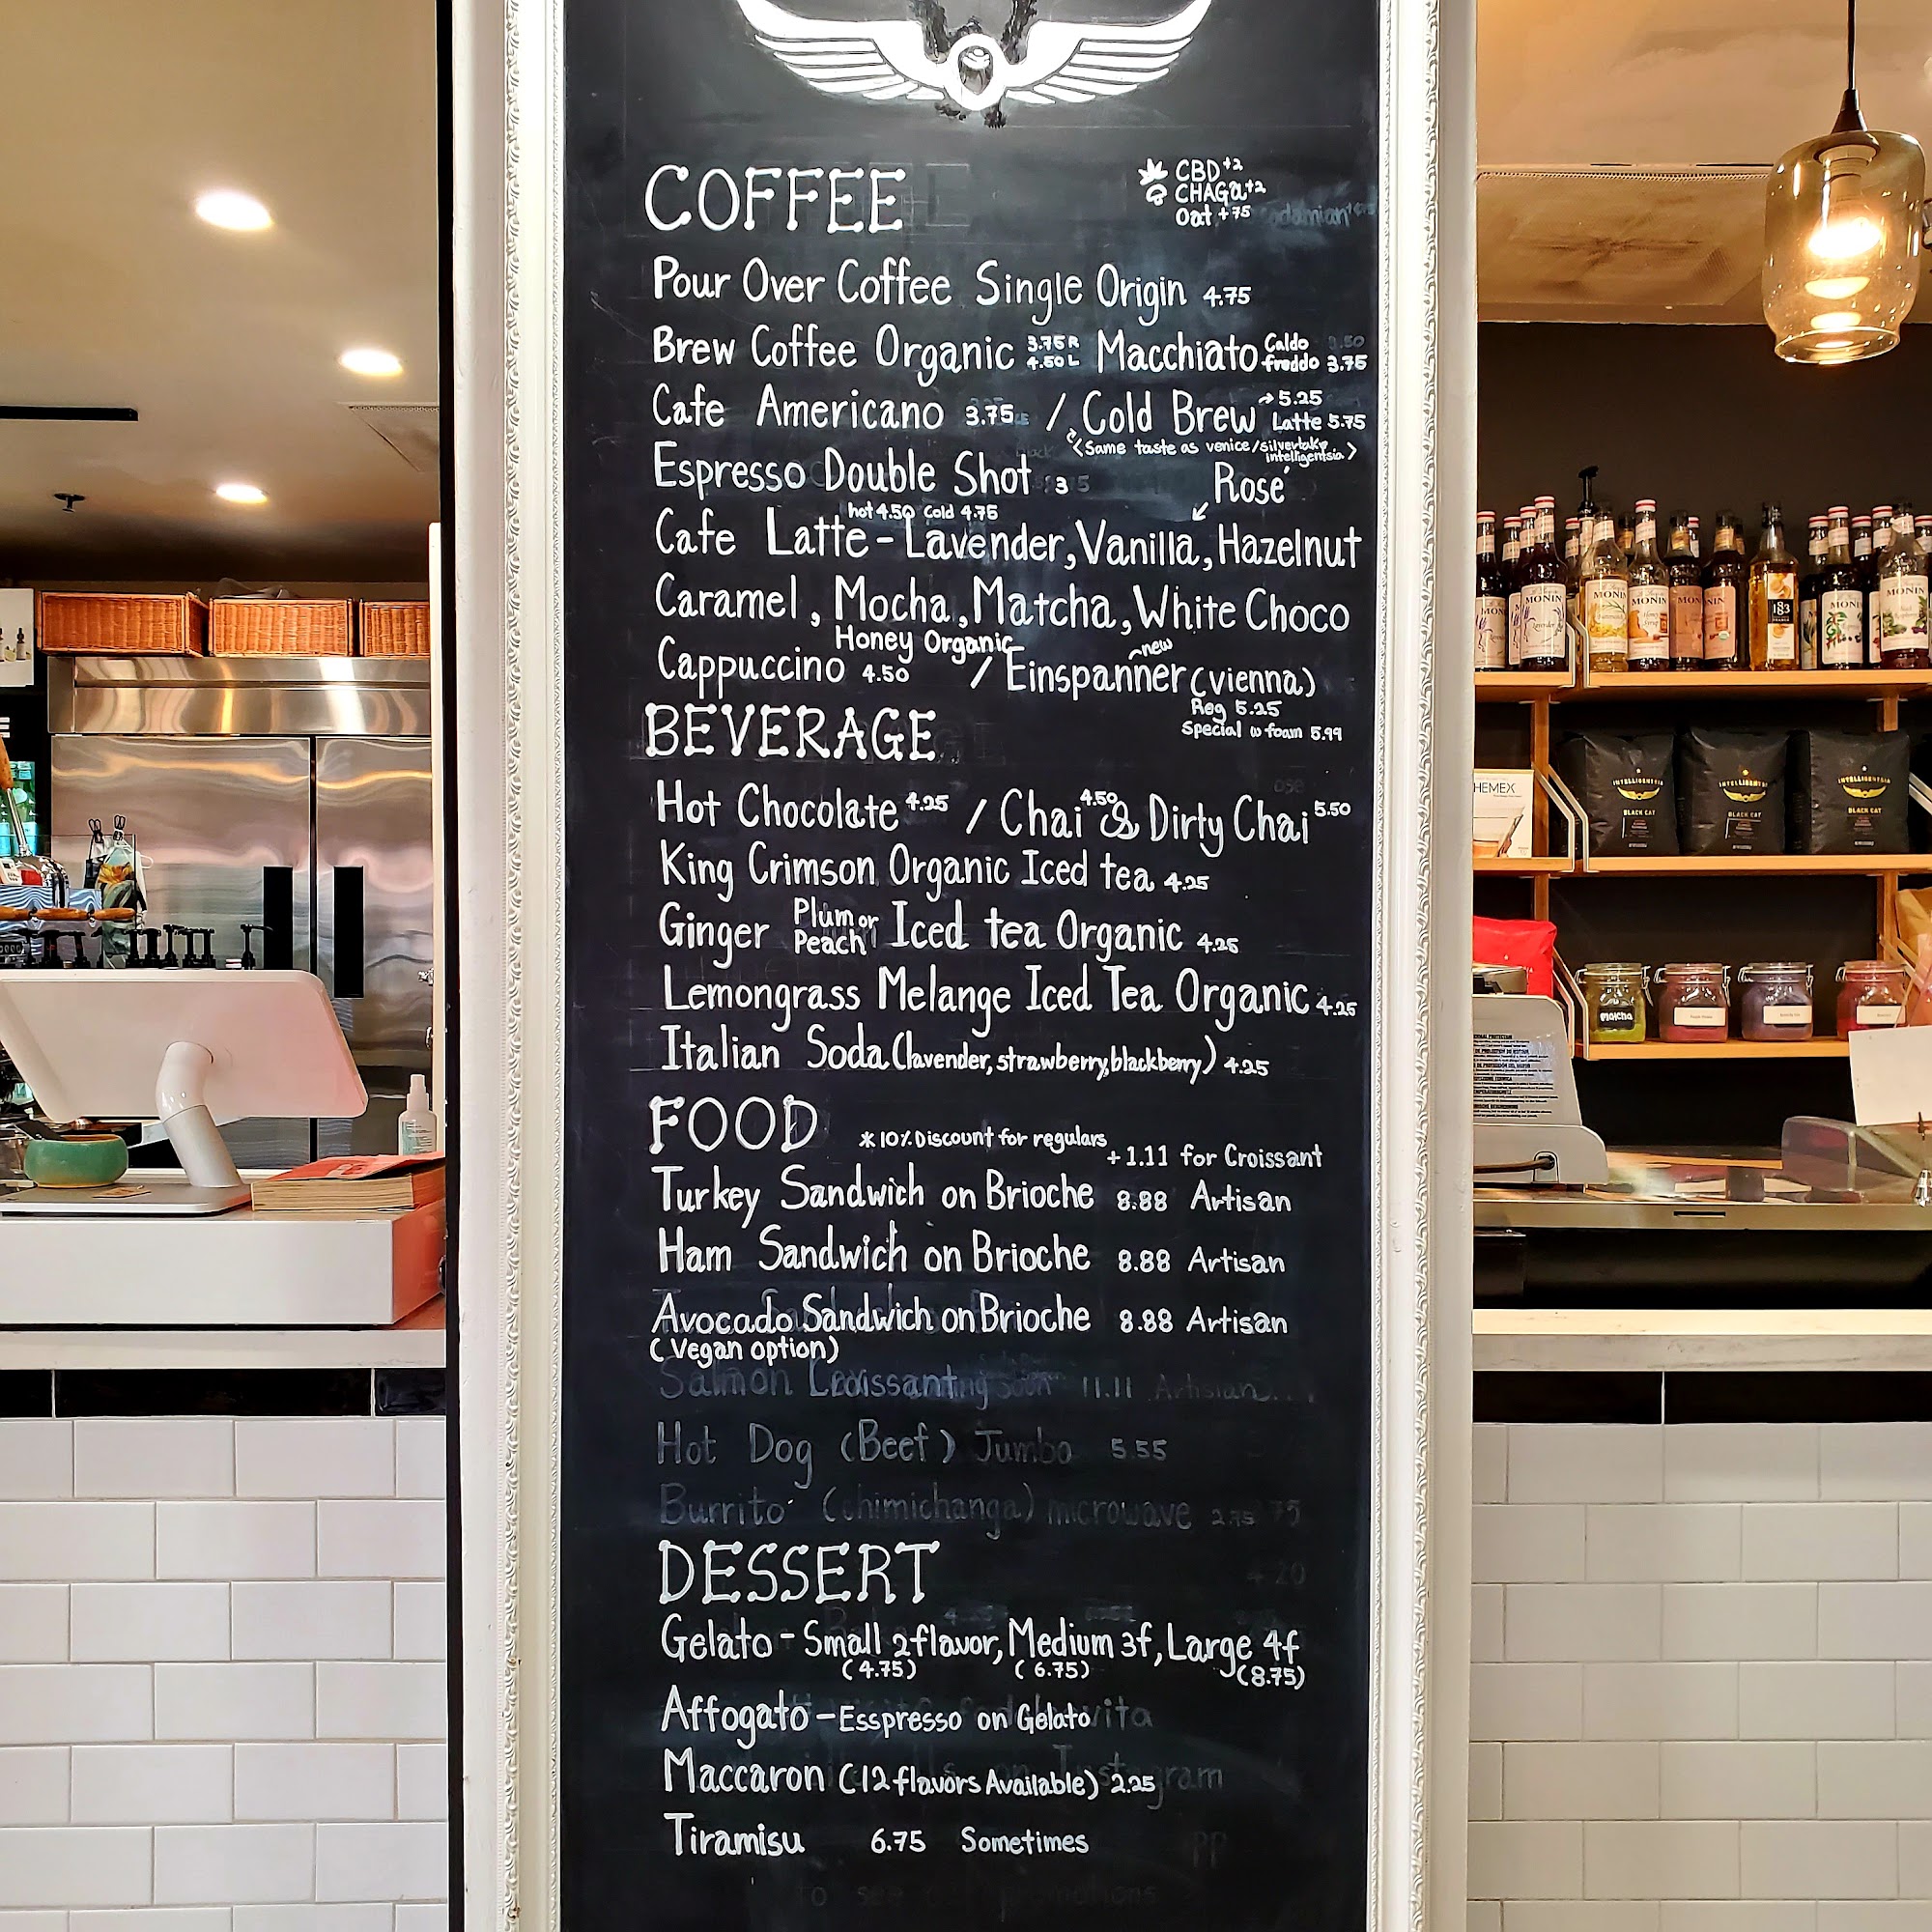 COFFEE
CBD +2
CHAGa +2
Oat +75
Pour Over Coffee Single Origin 4.75
Brew Coffee Organic 3.75 R 4.50 L Macchiato Caldo freddo 3.75
Cafe Americano 3.75 / Cold Brew → 5.25 Latte 5.75
(Same taste as venice/silverlake intelligentsia)
Espresso Double Shot 3
Rosé
hot 4.50 Cold 4.75
Cafe Latte - Lavender, Vanilla, Hazelnut
Caramel, Mocha, Matcha, White Choco
Honey Organic
new
Cappuccino 4.50 / Einspanner (vienna)
Reg 5.25
Special w foam 5.99
BEVERAGE
Hot Chocolate 4.25 / Chai 4.50 & Dirty Chai 5.50
King Crimson Organic Iced tea 4.25
Ginger Plum or Peach Iced tea Organic 4.25
Lemongrass Melange Iced Tea Organic 4.25
Italian Soda (lavender, strawberry, blackberry) 4.25
FOOD
* 10% Discount for regulars
+1.11 for Croissant
Turkey Sandwich on Brioche 8.88 Artisan
Ham Sandwich on Brioche 8.88 Artisan
Avocado Sandwich on Brioche 8.88 Artisan
(Vegan option)
Salmon Croissant 11.11 Artisian
Hot Dog (Beef) Jumbo 5.55
Burrito (chimichanga) microwave 2.75
DESSERT
Gelato - Small 2flavor, Medium 3f, Large 4f
(4.75) (6.75) (8.75)
Affogato - Esspresso on Gelato
Maccaron (12 flavors Available) 2.25
Tiramisu 6.75 Sometimes
MONIN
MONIN
MONIN
MONIN
MONIN
MONIN
MONIN
1883
HEMEX
INTELLIGENTSIA
BLACK CAT
INTELLIGENTSIA
BLACK CAT
INTELLIGENTSIA
BLACK CAT
Matcha